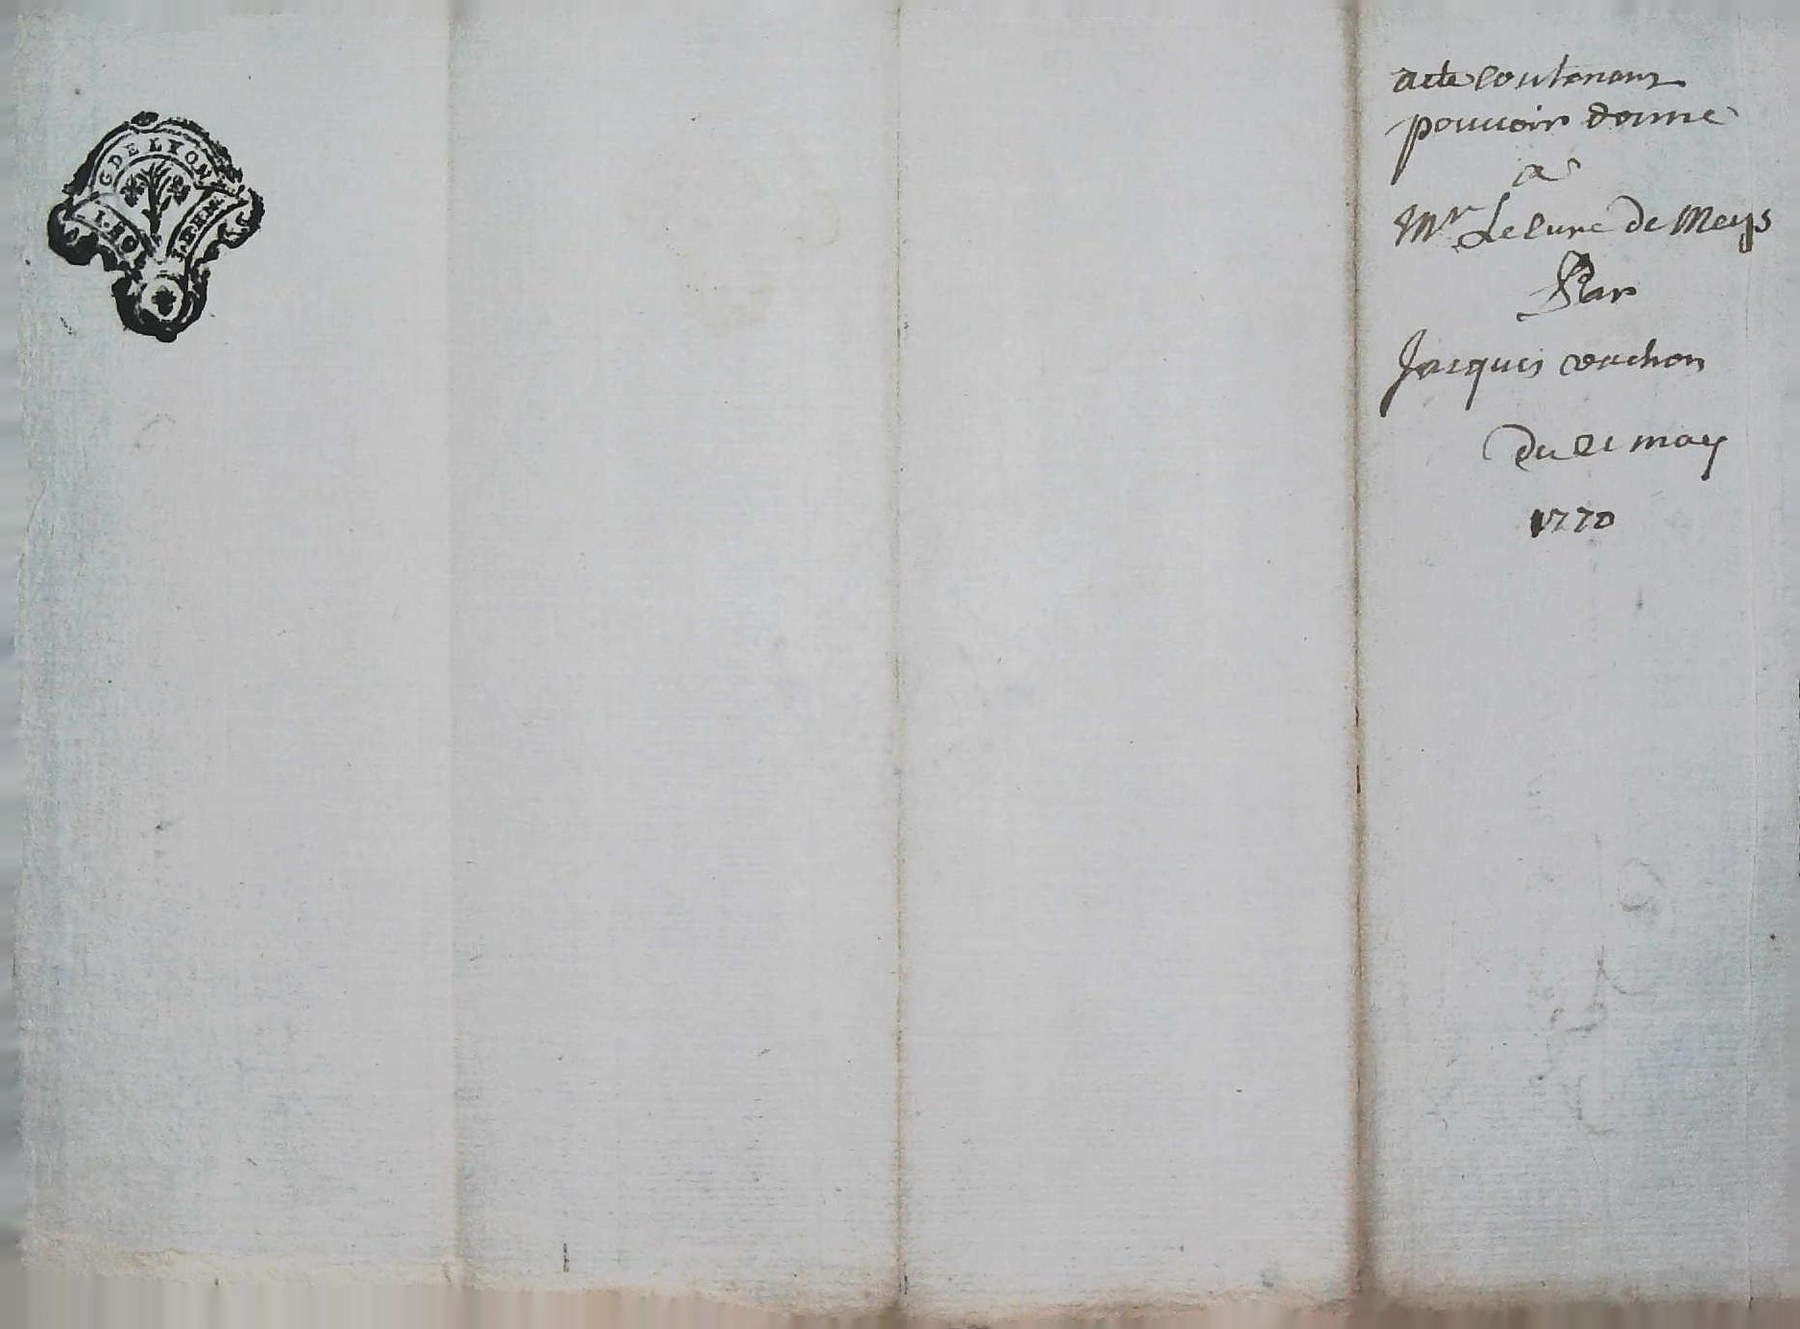 G. DE LYON
1. SO
acte contenant
pouvoir donné
a
Mr Le Curé de Meys
Par
Jacques
du 21 may
1770